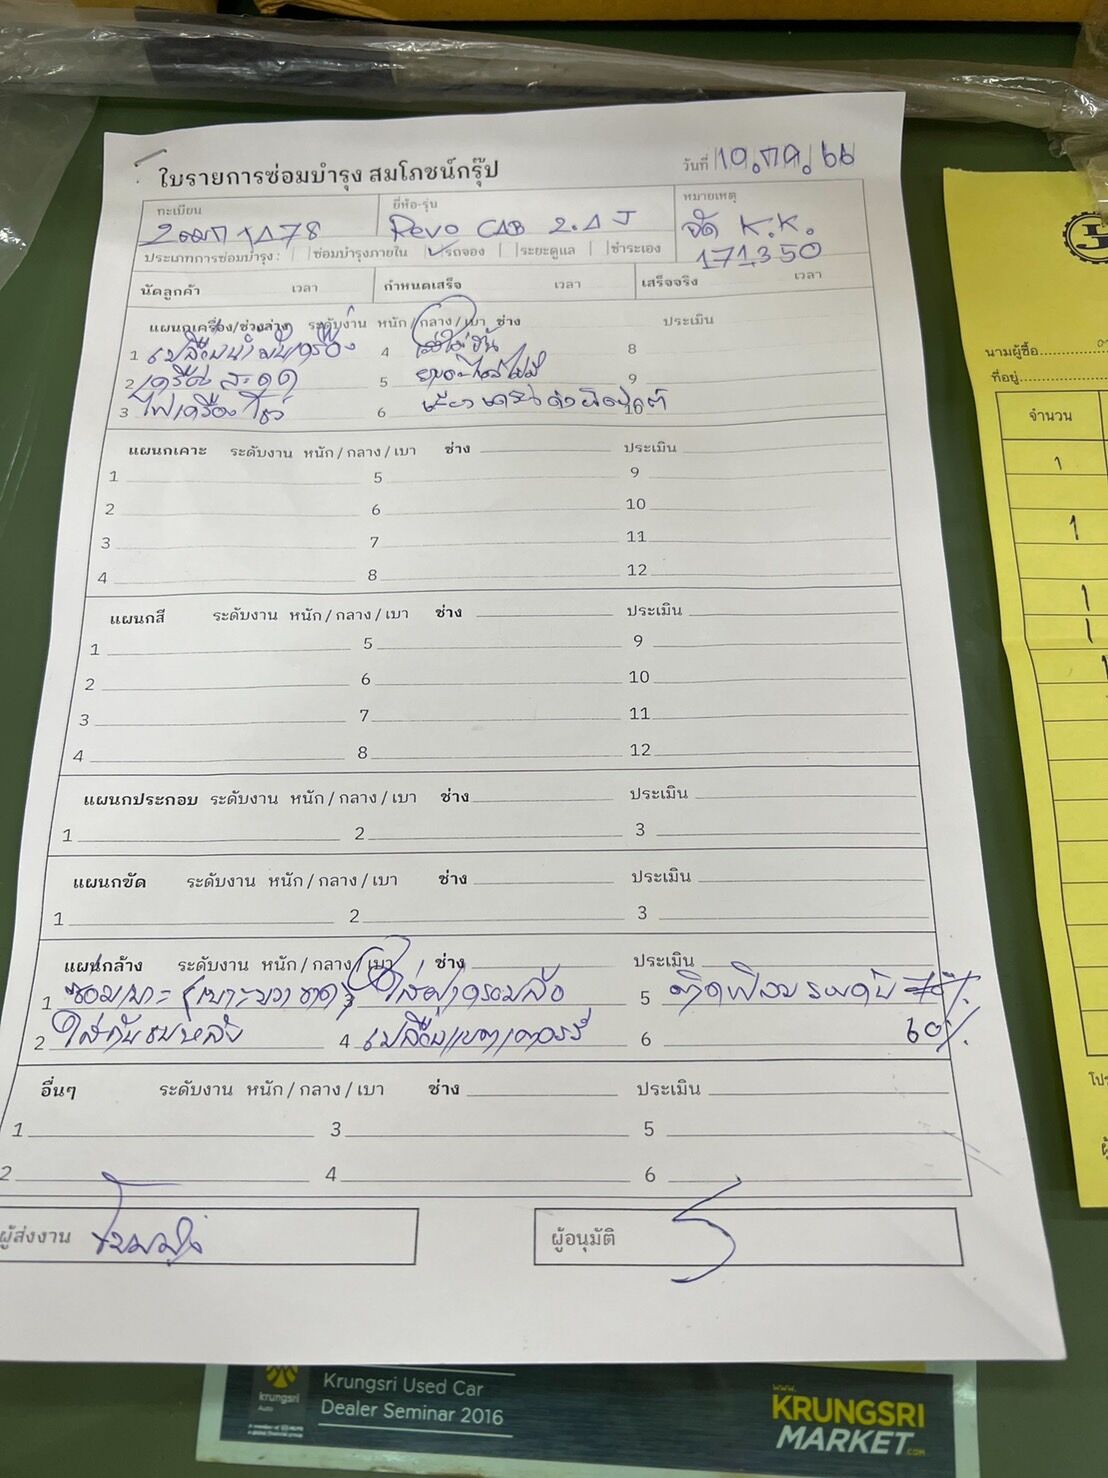 ใบรายการซ่อมบำรุง สมโภชน์กรุ๊ป
วันที่ 10,กค,66
ทะเบียน ยี่ห้อ-รุ่น หมายเหตุ
2ฒก1478 Revo CAB 2.4 J จัด K.K.
171,350
ประเภทการซ่อมบำรุง: | |ซ่อมบำรุงภายใน | |รถจอง | |ระยะดูแล | |ชำระเอง
นัดลูกค้า เวลา กำหนดเสร็จ เวลา เสร็จจริง เวลา
แผนกเครื่อง/ช่วงล่าง ระดับงาน หนัก/กลาง/เบา ช่าง ประเมิน
1 เปลี่ยนน้ำมันเครื่อง 4 8
2 เครื่องสะดุด 5 9
3 ไฟเครื่องโชว์ 6
แผนกเคาะ ระดับงาน หนัก/กลาง/เบา ช่าง ประเมิน
1 5 9
2 6 10
3 7 11
4 8 12
แผนกสี ระดับงาน หนัก/กลาง/เบา ช่าง ประเมิน
1 5 9
2 6 10
3 7 11
4 8 12
แผนกประกอบ ระดับงาน หนัก/กลาง/เบา ช่าง ประเมิน
1 2 3
แผนกขัด ระดับงาน หนัก/กลาง/เบา ช่าง ประเมิน
1 2 3
แผนกล้าง ระดับงาน หนัก/กลาง/เบา ช่าง ประเมิน
1 ซ่อมเบาะ (เบาะขวาขาด) 3 ใส่ฝาครอบล้อ 5 ติดฟิล์มรถคัน
2 ใส่กันชนหลัง 4 เปลี่ยนแบตเตอรรี่ 6 60%
อื่นๆ ระดับงาน หนัก/กลาง/เบา ช่าง ประเมิน
1 3 5
2 4 6
ผู้ส่งงาน ผู้อนุมัติ
นามผู้ซื้อ
ที่อยู่
จำนวน
1
1
1
1
1
krungsri
Auto
Krungsri Used Car
Dealer Seminar 2016
www.
KRUNGSRI
MARKET.COM